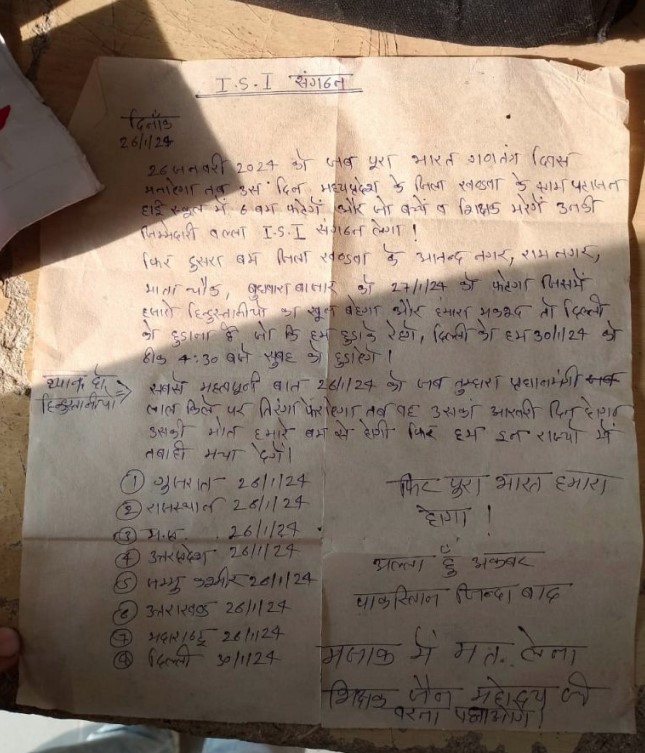 I.S.I संगठन
दिनाँक
26/1/24
26 जनवरी 2024 को जब पूरा भारत गणतंत्र दिवस
मनाऐगा तब उस दिन मध्यप्रदेश के जिला खण्डवा के ग्राम
हाई स्कूल में 6 बम फटेगें और जो बच्चे व शिक्षक मरेगें उनकी
जिम्मेदारी I.S.I संगठन लेगा!
फिर दुसरा बम जिला खण्डवा के आनन्द नगर, राम नगर,
माता चौक, बुधवारा बाजार को 27/1/24 को फटेगा जिसमें
हजारो हिन्दुस्तानीयो का खून बहेगा और हमारा मकसद तो दिल्ली
को उड़ाना है जो कि हम उड़ाके रहेगे, दिल्ली को हम 30/1/24 को
ठीक 4:30 बजे सुबह को उड़ाऐगे!
ध्यान दो
हिन्दुस्तानीयो
सबसे महत्वपूर्ण बात 26/1/24 को जब तुम्हारा प्रधानमंत्री
लाल किले पर तिरंगा फेहराऐगा तब वह उसका आखरी दिन होगा
उसकी मौत हमारे बम से होगी फिर हम इन राज्यो में
तबाही मचा देगें।
① गुजरात 26/1/24
② राजस्थान 26/1/24
③ म.प्र. 26/1/24
④ उत्तरप्रदेश 26/1/24
⑤ जम्मु कश्मीर 26/1/24
⑥ उत्तराखण्ड 26/1/24
⑦ महाराष्ट्र 26/1/24
⑧ दिल्ली 30/1/24
फिर पुरा भारत हमारा
होगा!
अल्ला हुँ अकबर
पाकिस्तान जिन्दा बाद
मजाक में मत लेना
शिक्षक जैन महोदय जी
वरना पछताओगे!